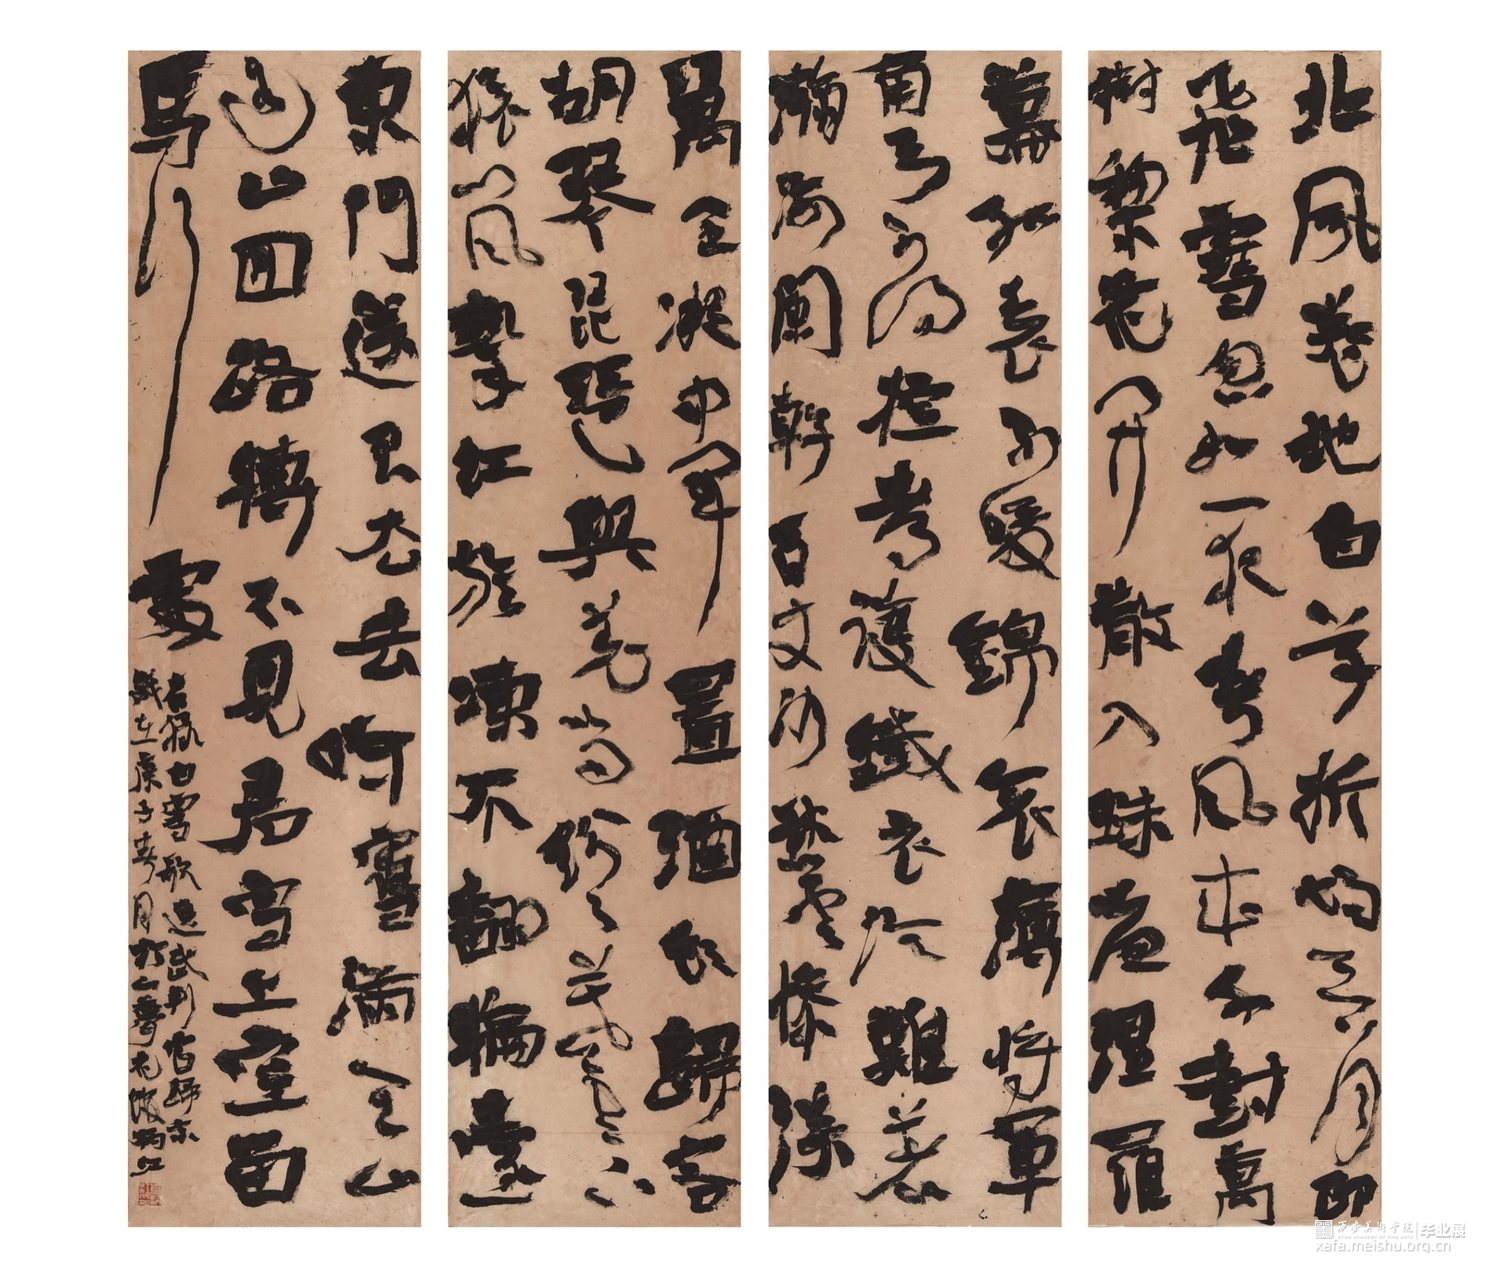 北風卷地白草折胡天八月即
飛雪忽如一夜春風來千樹萬
樹棃花開散入珠簾溼羅
幕狐裘不暖錦衾薄將軍
角弓不得控都護鐵衣冷難著
瀚海闌幹百丈冰愁雲慘淡
萬里凝中軍置酒飲歸客
胡琴琵琶與羌笛紛紛暮雪下
轅門風掣紅旗凍不翻輪臺
東門送君去去時雪滿天山
山回路轉不見君雪上空留
馬行處
右録白雪歌送武判官歸京
歲在庚子春月於
西安美術學院 毕业展
xafa.meishu.org.cn